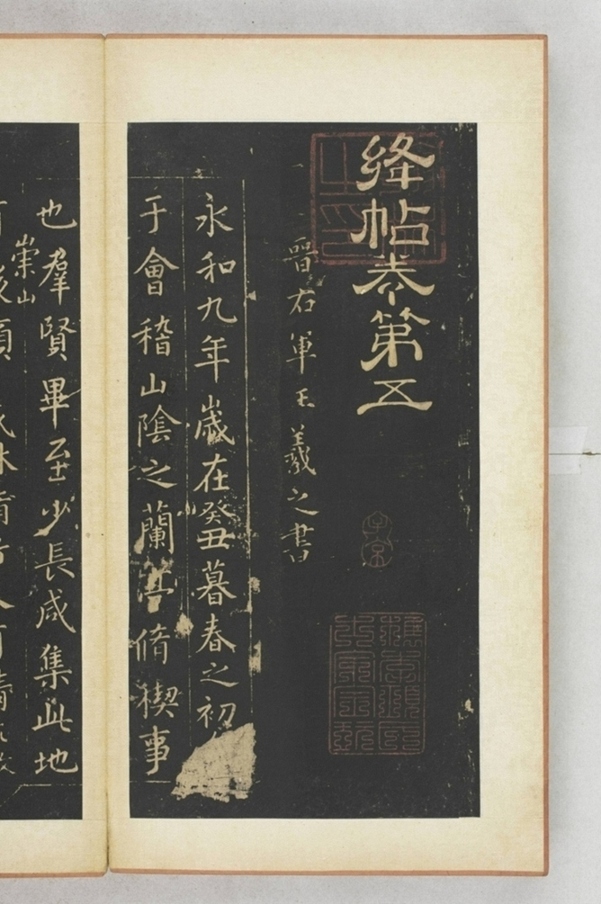 絳帖卷第五
晉右軍王羲之書
永和九年歲在癸丑暮春之初
于會稽山陰之蘭亭脩稧事
也羣賢畢至少長咸集此地
崇山